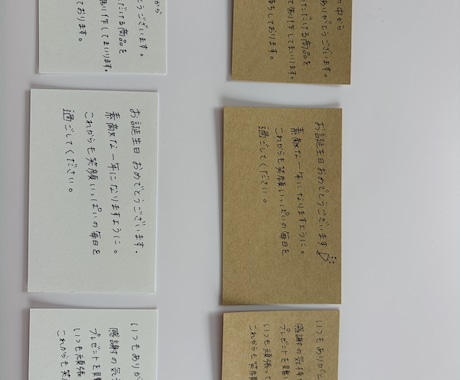 が
とうございます。
ただける商品を
しております。
の中から
ありがとうございます。
いただける商品を
しております。
お誕生日おめでとうございます。
素敵な一年になりますように。
これからも笑顔いっぱいの毎日を
過ごしてください。
お誕生日おめでとうございます
素敵な一年になりますように。
これからも笑顔いっぱいの毎日を
過ごしてください。
いつもありが
感謝の気
プレゼントを
いつも頑張
これからも笑
いつもありが
感謝の気持
プレゼントを
いつも頑張って
これからも笑